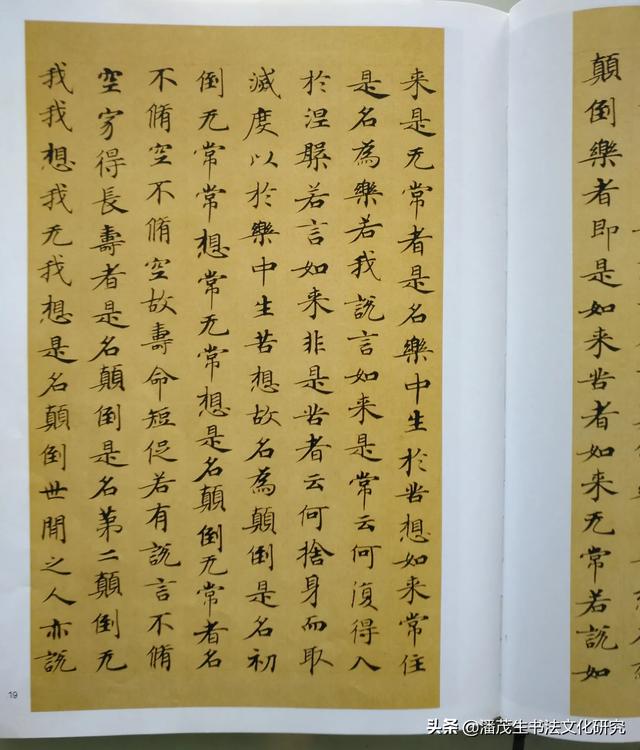 顛倒樂者即是如来苦者如来无常若説如
来是无常者是名樂中生於苦想如来常住
是名為樂若我説言如来是常云何復得入
於涅槃若言如来非是苦者云何捨身而取
滅度以於樂中生苦想故名為顛倒是名初
倒无常常想常无常想是名顛倒无常者名
不脩空不脩空故壽命短促若有説言不脩
空寂得長壽者是名顛倒是名第二顛倒无
我我想我无我想是名顛倒世間之人亦説
19
头条 @潘茂生书法文化研究